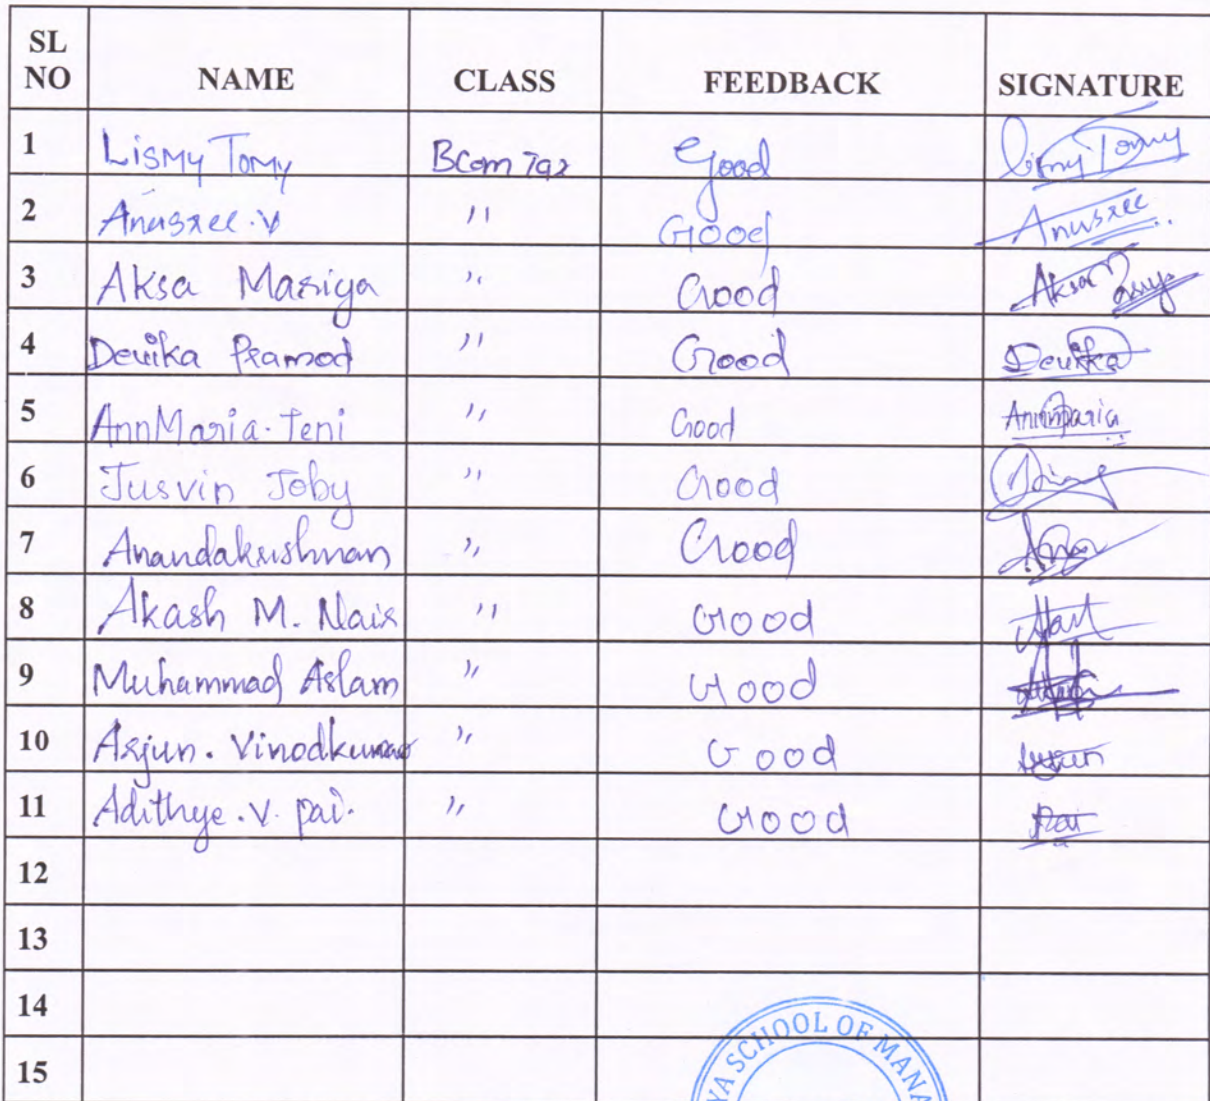 SL NO NAME CLASS FEEDBACK SIGNATURE
1 Lismy Tomy BCom Tax Good Lismy Tomy
2 Anusree.V " Good Anusree
3 Aksa Mariya " Good Aksa
4 Devika Pramod " Good Devika
5 AnnMaria.Teni " Good Annmaria
6 Jusvin Joby " Good
7 Anandakrishnan " Good
8 Akash M. Nair " Good
9 Muhammad Aslam " Good
10 Arjun. Vinodkumar " Good Arjun
11 Adithye.V. pai. " Good Pai
12
13
14
15
YA SCHOOL OF MANA